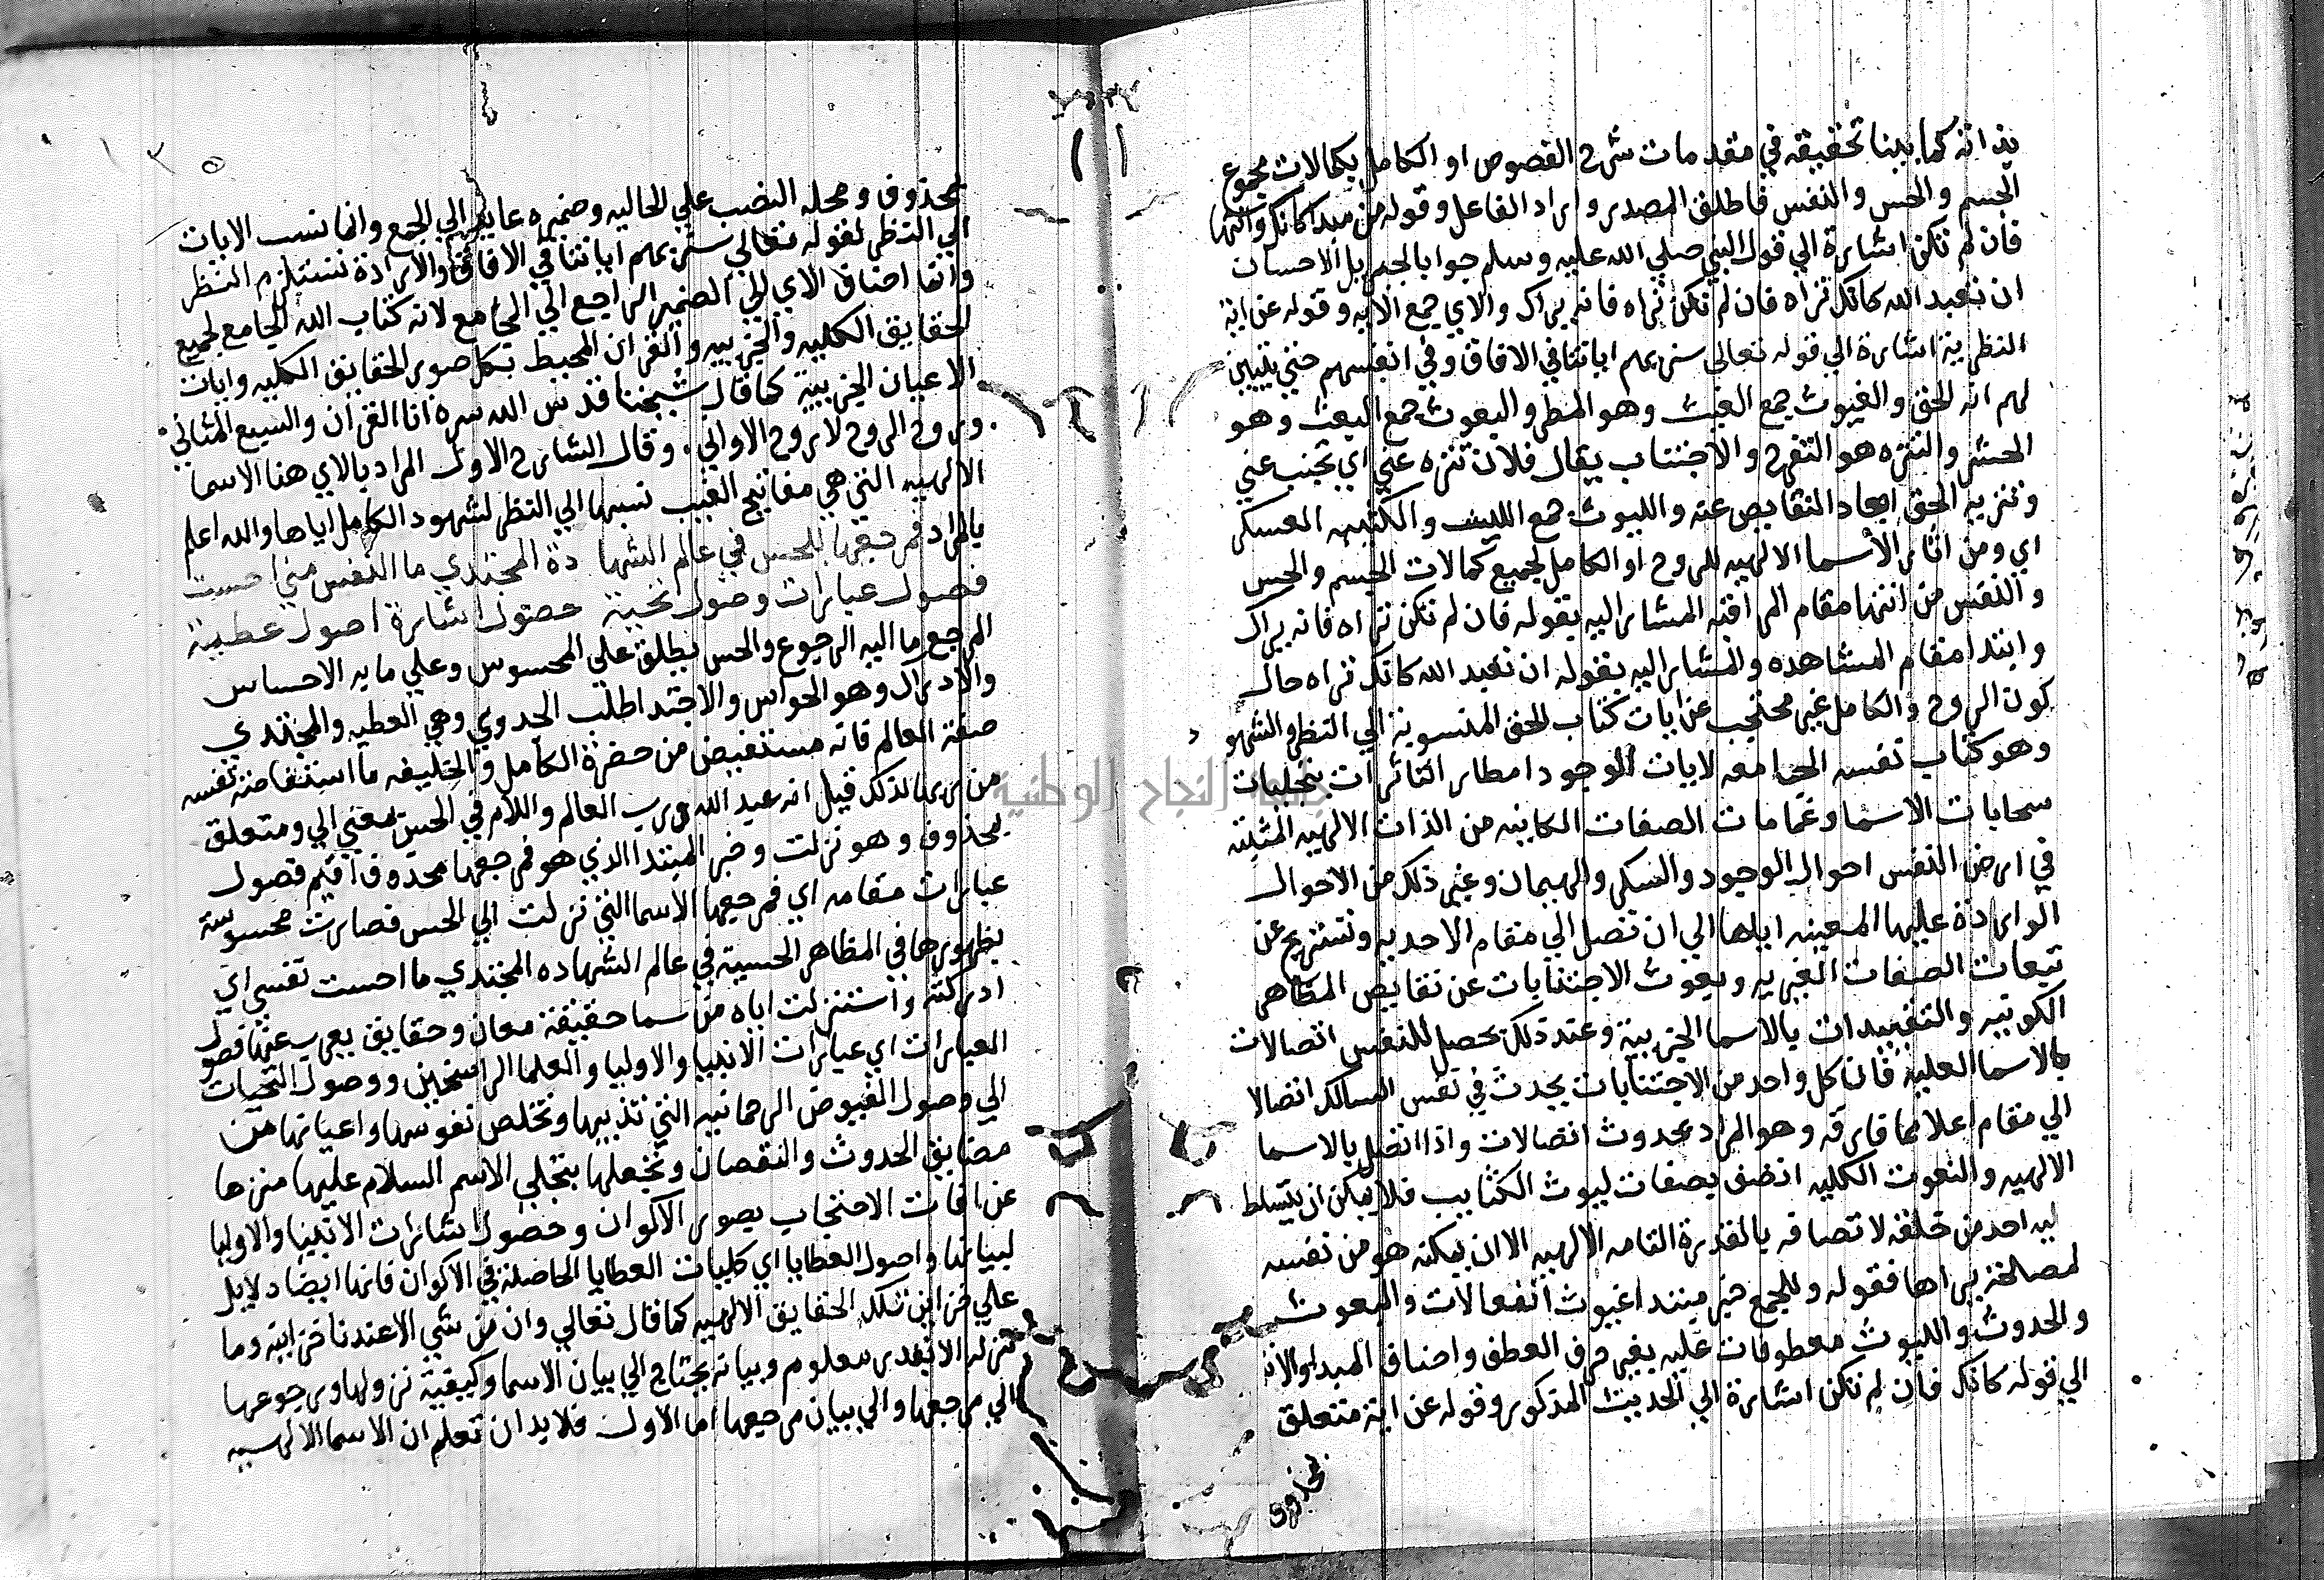 بذاته كما بينا تحقيقه في مقدمات شرح الفصوص او الكامل بكمالات مجموع
الجسم والحس والنفس فاطلق المصدر واراد الفاعل وقوله من مبدا كانك وانتها
فان لم تكن اشارة الي قول النبي صلي الله عليه وسلم جوابا لجبريل الاحسان
ان تعبد الله كانك تراه فان لم تكن تراه فانه يراك والاي جمع الايه وقوله عن اية
النظرية اشارة الي قوله تعالى سنريهم اياتنا في الافاق وفي انفسهم حتي يتبين
لهم انه الحق والغيوث جمع الغيث وهو المطر والبعوث جمع البعث وهو
الحشر والتنزه هو التفرج والاجتناب يقال فلان تنزه عني اي تجنب عني
وتنزيه الحق ابعاد النقايص عنه والليوث جمع الليث والكتيبه العسكر
اي ومن اثار الأسما الالهيه للروح او الكامل لجميع كمالات الجسم والحس
والنفس من انتها مقام المراقبه المشار اليه بقوله فان لم تكن تراه فانه يراك
وابتدا مقام المشاهده والمشار اليه بقوله ان تعبد الله كانك تراه حال
كون الروح والكامل غير محتجب عن ايات كتاب الحق المنسوبة الي النظر والشهو
وهو كتاب نفسه الجامعه لايات الوجود امطار التاثرات بتجليات
سحابات الاسما وغمامات الصفات الكاينه من الذات الالهيه المثبته
في ارض النفس احوال الوجود والسكر والهيمان وغير ذلك من الاحوال
الوارده عليها المعينه اياها الي ان تصل الي مقام الاحديه وتستريح عن
تبعات الصفات الغيريه وبعوث الاجتنابات عن نقايص المظاهر
الكونيه والتقييدات بالاسما الجزيية وعند ذلك يحصل للنفس اتصالات
بالاسما العلية فان كل واحد من الاجتنابات يحدث في نفس السالك اتصالا
الي مقام اعلا مما فارقه وهو المراد بحدوث اتصالات واذا اتصل بالاسما
الالهيه والنعوت الكليه اتصف بصفات ليوث الكتايب فلا يمكن ان يتسلط
ليه احد من خلقه لاتصافه بالقدرة التامه الالهيه الا ان يمكنه هو من نفسه
لمصلحة يراها فقوله وللجمع خبر مبتدا غيوث انفعالات والبعوث
والحدوث والليوث معطوفات عليه بغير حرف العطف واضاف المبدا والانتـ
الي قوله كانك فان لم تكن اشارة الي الحديث المذكور وقوله عن اية متعلق
بمحذوف
١٣٥
بمحذوف ومحله النصب علي الحاليه وضميره عايد الي الجمع وانما نسب الايات
الي النظر لقوله تعالي سنريهم اياتنا في الافاق والاراءة تستلزم النظر
وانما اضاف الاي الي الضمير الراجع الي الجامع لانه كتاب الله الجامع لجميع
الحقايق الكليه والجزييه والقران المحيط بكل صور الحقايق الكليه وايات
الاعيان الجزيية كما قال شيخنا قدس الله سره انا القران والسبع المثاني
وروح الروح لا روح الاواني وقال الشارح الاول المراد بالاي هنا الاسما
الالهيه التي هي مفاتيح الغيب نسبها الي النظر لشهود الكامل اياها والله اعلم
بالمراد فمرجعها للحس في عالم الشهادة المجتدي ما النفس مني احست
فصول عبارات وصول تحية حصول اشارة اصول عطية
المرجع ما اليه الرجوع والحس يطلق علي المحسوس وعلي ما به الاحساس
والادراك وهو الحواس والاجتدا طلب الجدوي وهي العطيه والمجتدي
صفة العالم فانه مستفيض من حضرة الكامل والخليفه ما استفاضته نفسه
من ربها لذلك قيل انه عبد الله ورب العالم واللام في الحس بمعني الي ومتعلق
بمحذوف وهو نزلت وخبر المبتدا الذي هو فمرجعها محذوف اقيم فصول
عبارات مقامه اي فمرجعها الاسما التي نزلت الي الحس فصارت محسوسة
بظهورها في المظاهر الحسية في عالم الشهاده المجتدي ما احست نفسي اي
ادركته واستنزلت اياه من سما حقيقة معان وحقايق يعرب عنها فصول
العبارات اي عبارات الانبيا والاوليا والعلما الراسخين ووصول التحيات
الي وصول الفيوض الرحمانيه التي تذيبها وتخلص نفوسها واعيانها من
مضايق الحدوث والنقصان وتجعلها بتجلي الاسم السلام عليها منزها
عن افات الاحتجاب بصور الاكوان وحصول اشارات الانبيا والاوليا
لبيانها واصول العطايا اي كليات العطايا الحاصلة في الاكوان فانها ايضا دلايل
علي خزاين تلك الحقايق الالهيه كما قال تعالي وان من شي الا عندنا خزاينه وما
ننزله الا بقدر معلوم وبيانه يحتاج الي بيان الاسما وكيفية نزولها ورجوعها
الي مرجعها والي بيان مرجعها اما الاول فلا بد ان تعلم ان الاسما الالهيه
جامعة النجاح الوطنية